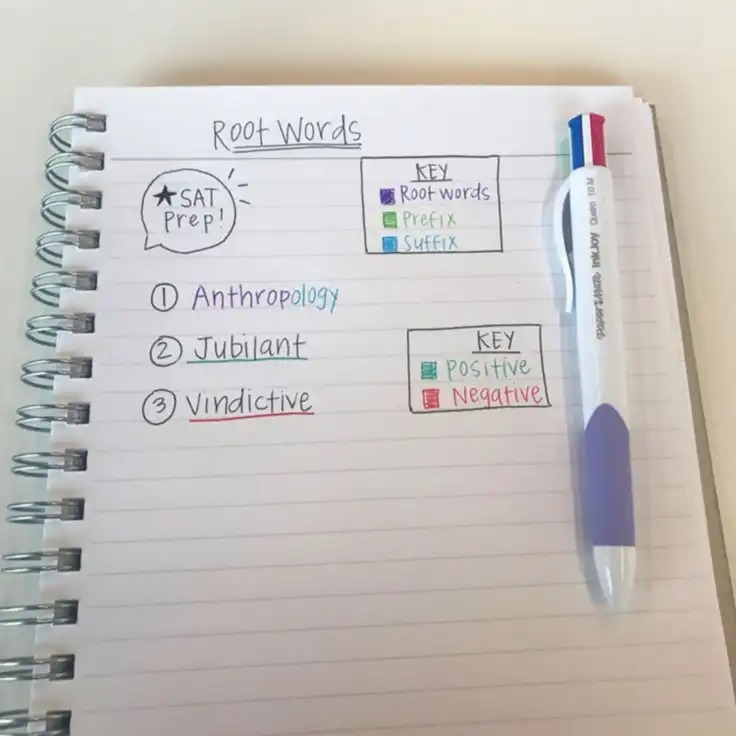 Root Words
★SAT
Prep!
KEY
Root words
Prefix
Suffix
① Anthropology
② Jubilant
③ Vindictive
KEY
Positive
Negative
PAPER MATE InkJoy Quatro 1.0 M